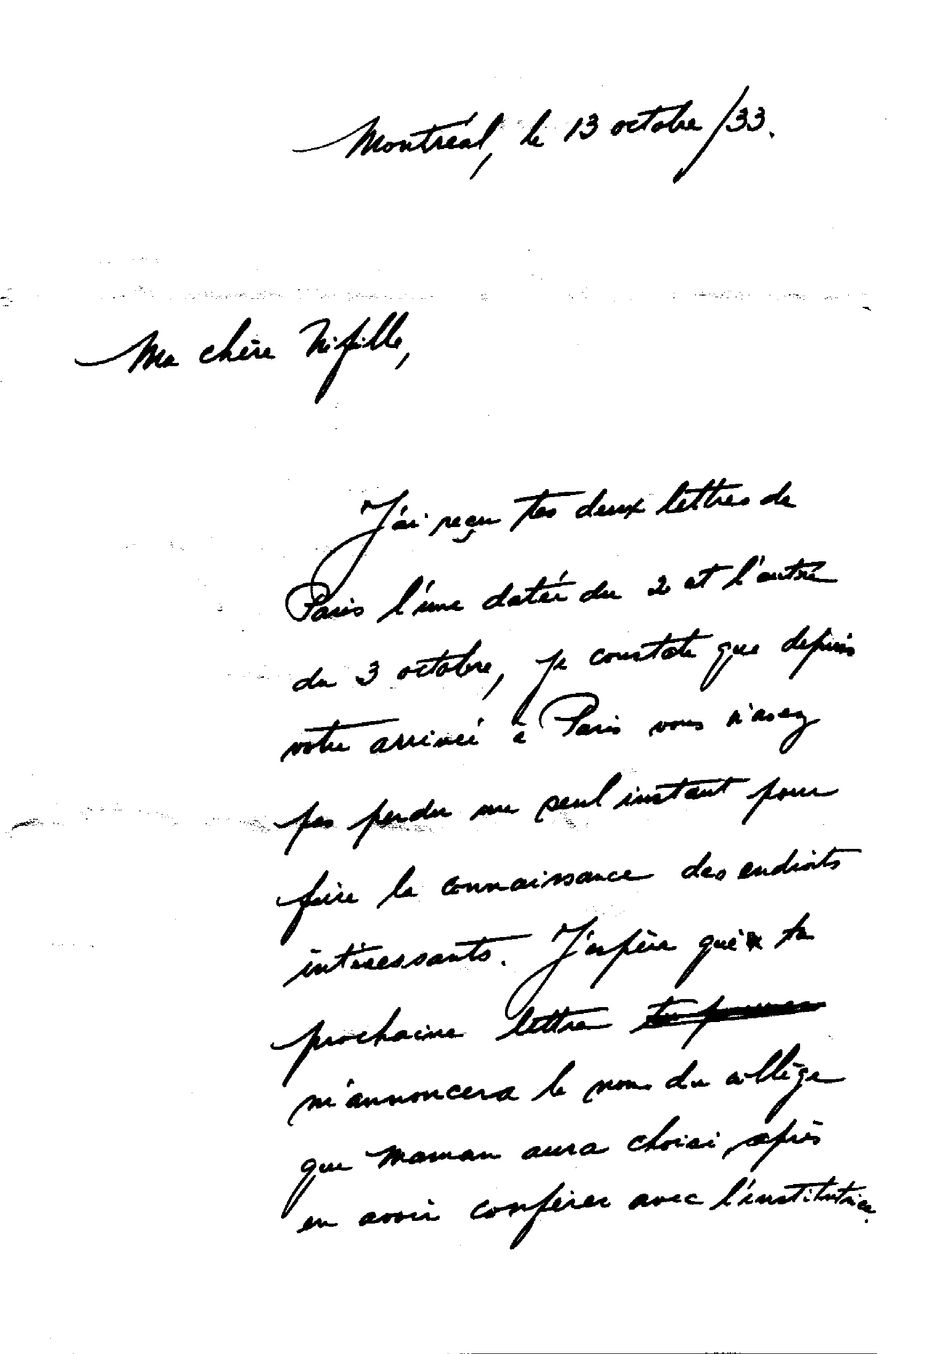 Montréal, le 13 octobre /33.
Ma chère Nifille,
J'ai reçu tes deux lettres de
Paris l'une datée du 2 et l'autre
du 3 octobre, je constate que depuis
votre arrivée à Paris vous n'avez
pas perdu un seul instant pour
faire la connaissance des endroits
intéressants. J'espère que ta
prochaine lettre
m'annoncera le nom du collège
que maman aura choisi après
en avoir conférer avec l'institutrice.